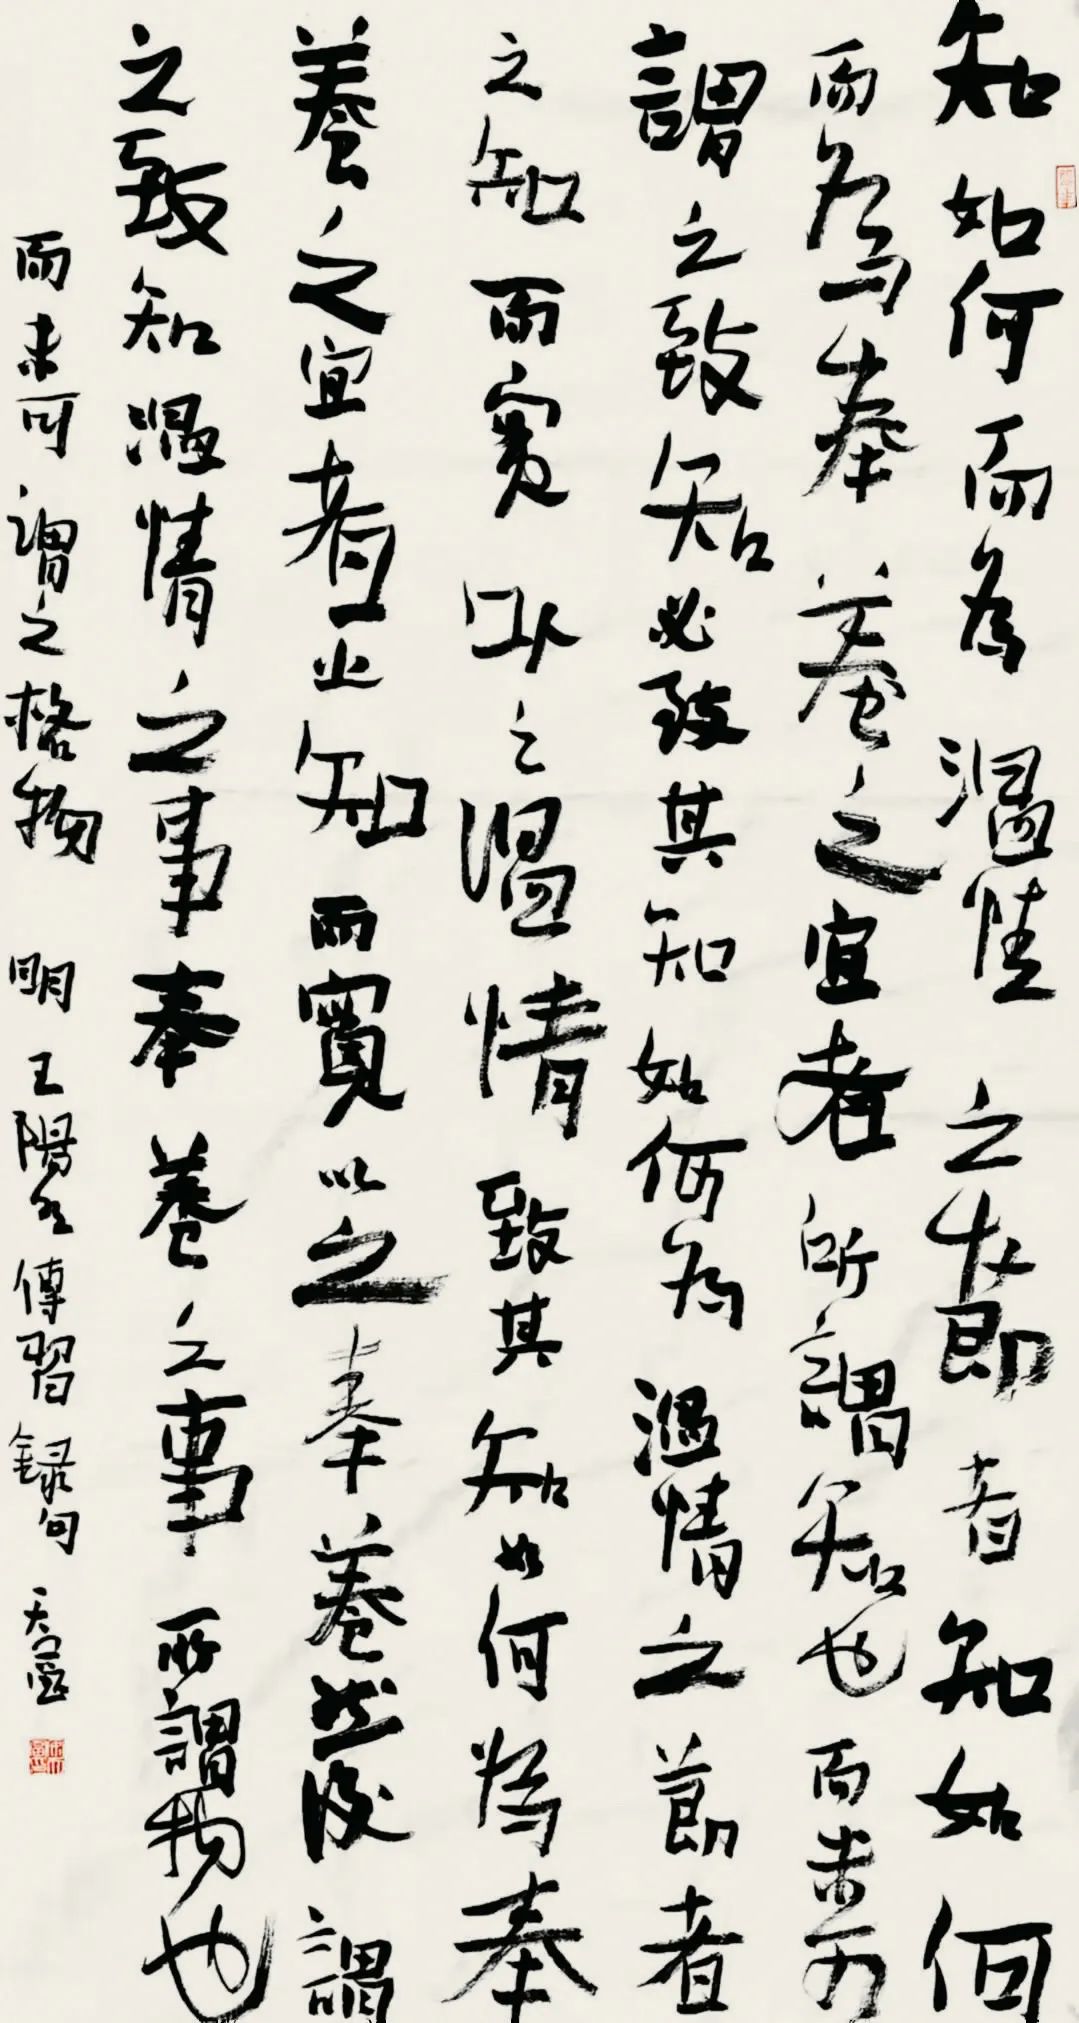 知如何而為溫凊之節者知如何
而為奉養之宜者所謂知也而未可
謂之致知必致其知如何為溫情之節者
之知而實以之溫情致其知如何為奉
養之宜者之知而實以之奉養然後謂
之致知溫情之事奉養之事所謂物也
而未可謂之格物 明王陽明傳習錄句